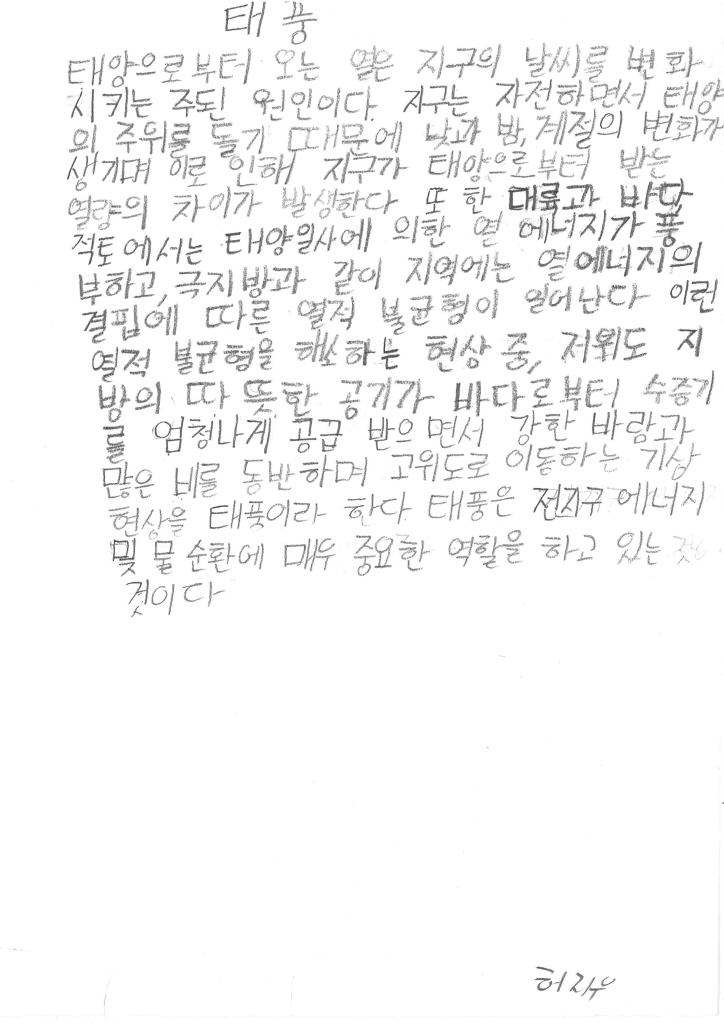 태풍
태양으로부터 오는 열은 지구의 날씨를 변화
시키는 주된 원인이다. 지구는 자전하면서 태양
의 주위를 돌기 때문에 낮과 밤, 계절의 변화가
생기며 이로 인해 지구가 태양으로부터 받는
열량의 차이가 발생한다. 또 한 대륙과 바다,
적토에서는 태양일사에 의한 열 에너지가 풍
부하고, 극지방과 같이 지역에는 열에너지의
결핍에 따른 열적 불균형이 일어난다 이런
열적 불균형을 해소하는 현상 중, 저위도 지
방의 따뜻한 공기가 바다로부터 수증기
를 엄청나게 공급 받으면서 강한 바람과
많은 비를 동반하며 고위도로 이동하는 기상
현상을 태풋이라 한다. 태풍은 전지구 에너지
및 물 순환에 매우 중요한 역할을 하고 있는
것이다
허지우